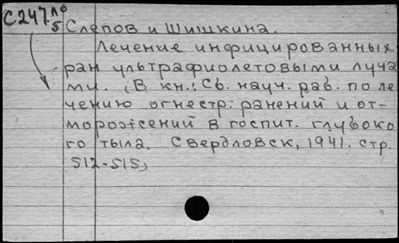 С247 по
5
Слепов и Шишкина.
Лечение инфицированных
ран ультрафиолетовыми луча
ми. (В кн.: Сб. науч. раб. по ле
чению огнестр. ранений и от-
морожений в госпит. глубоко
го тыла. Свердловск, 1941. стр.
512-515)